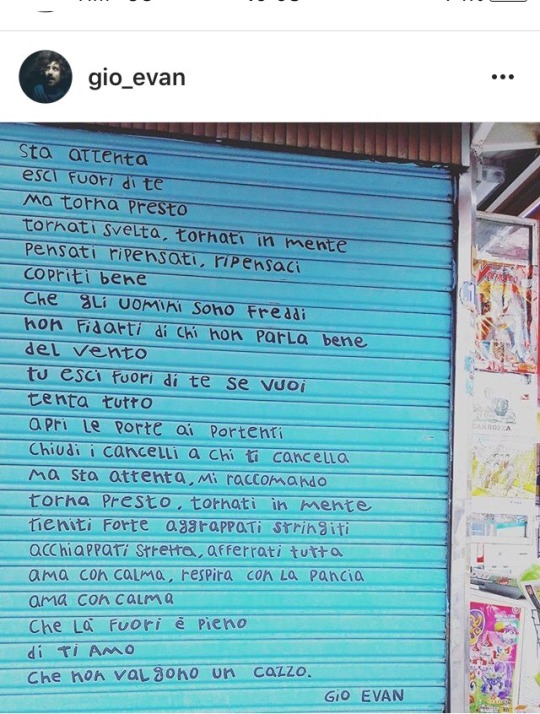 gio_evan
Sta attenta
esci fuori di te
ma torna presto
tornati svelta, tornati in mente
pensati ripensati, ripensaci
copriti bene
che gli uomini sono freddi
non fidarti di chi non parla bene
del vento
tu esci fuori di te se vuoi
tenta tutto
apri le porte ai portenti
chiudi i cancelli a chi ti cancella
ma sta attenta, mi raccomando
torna presto, tornati in mente
tieniti forte aggrappati stringiti
acchiappati stretta, afferrati tutta
ama con calma, respira con la pancia
ama con calma
che là fuori è pieno
di ti amo
che non valgono un cazzo.
GIO EVAN